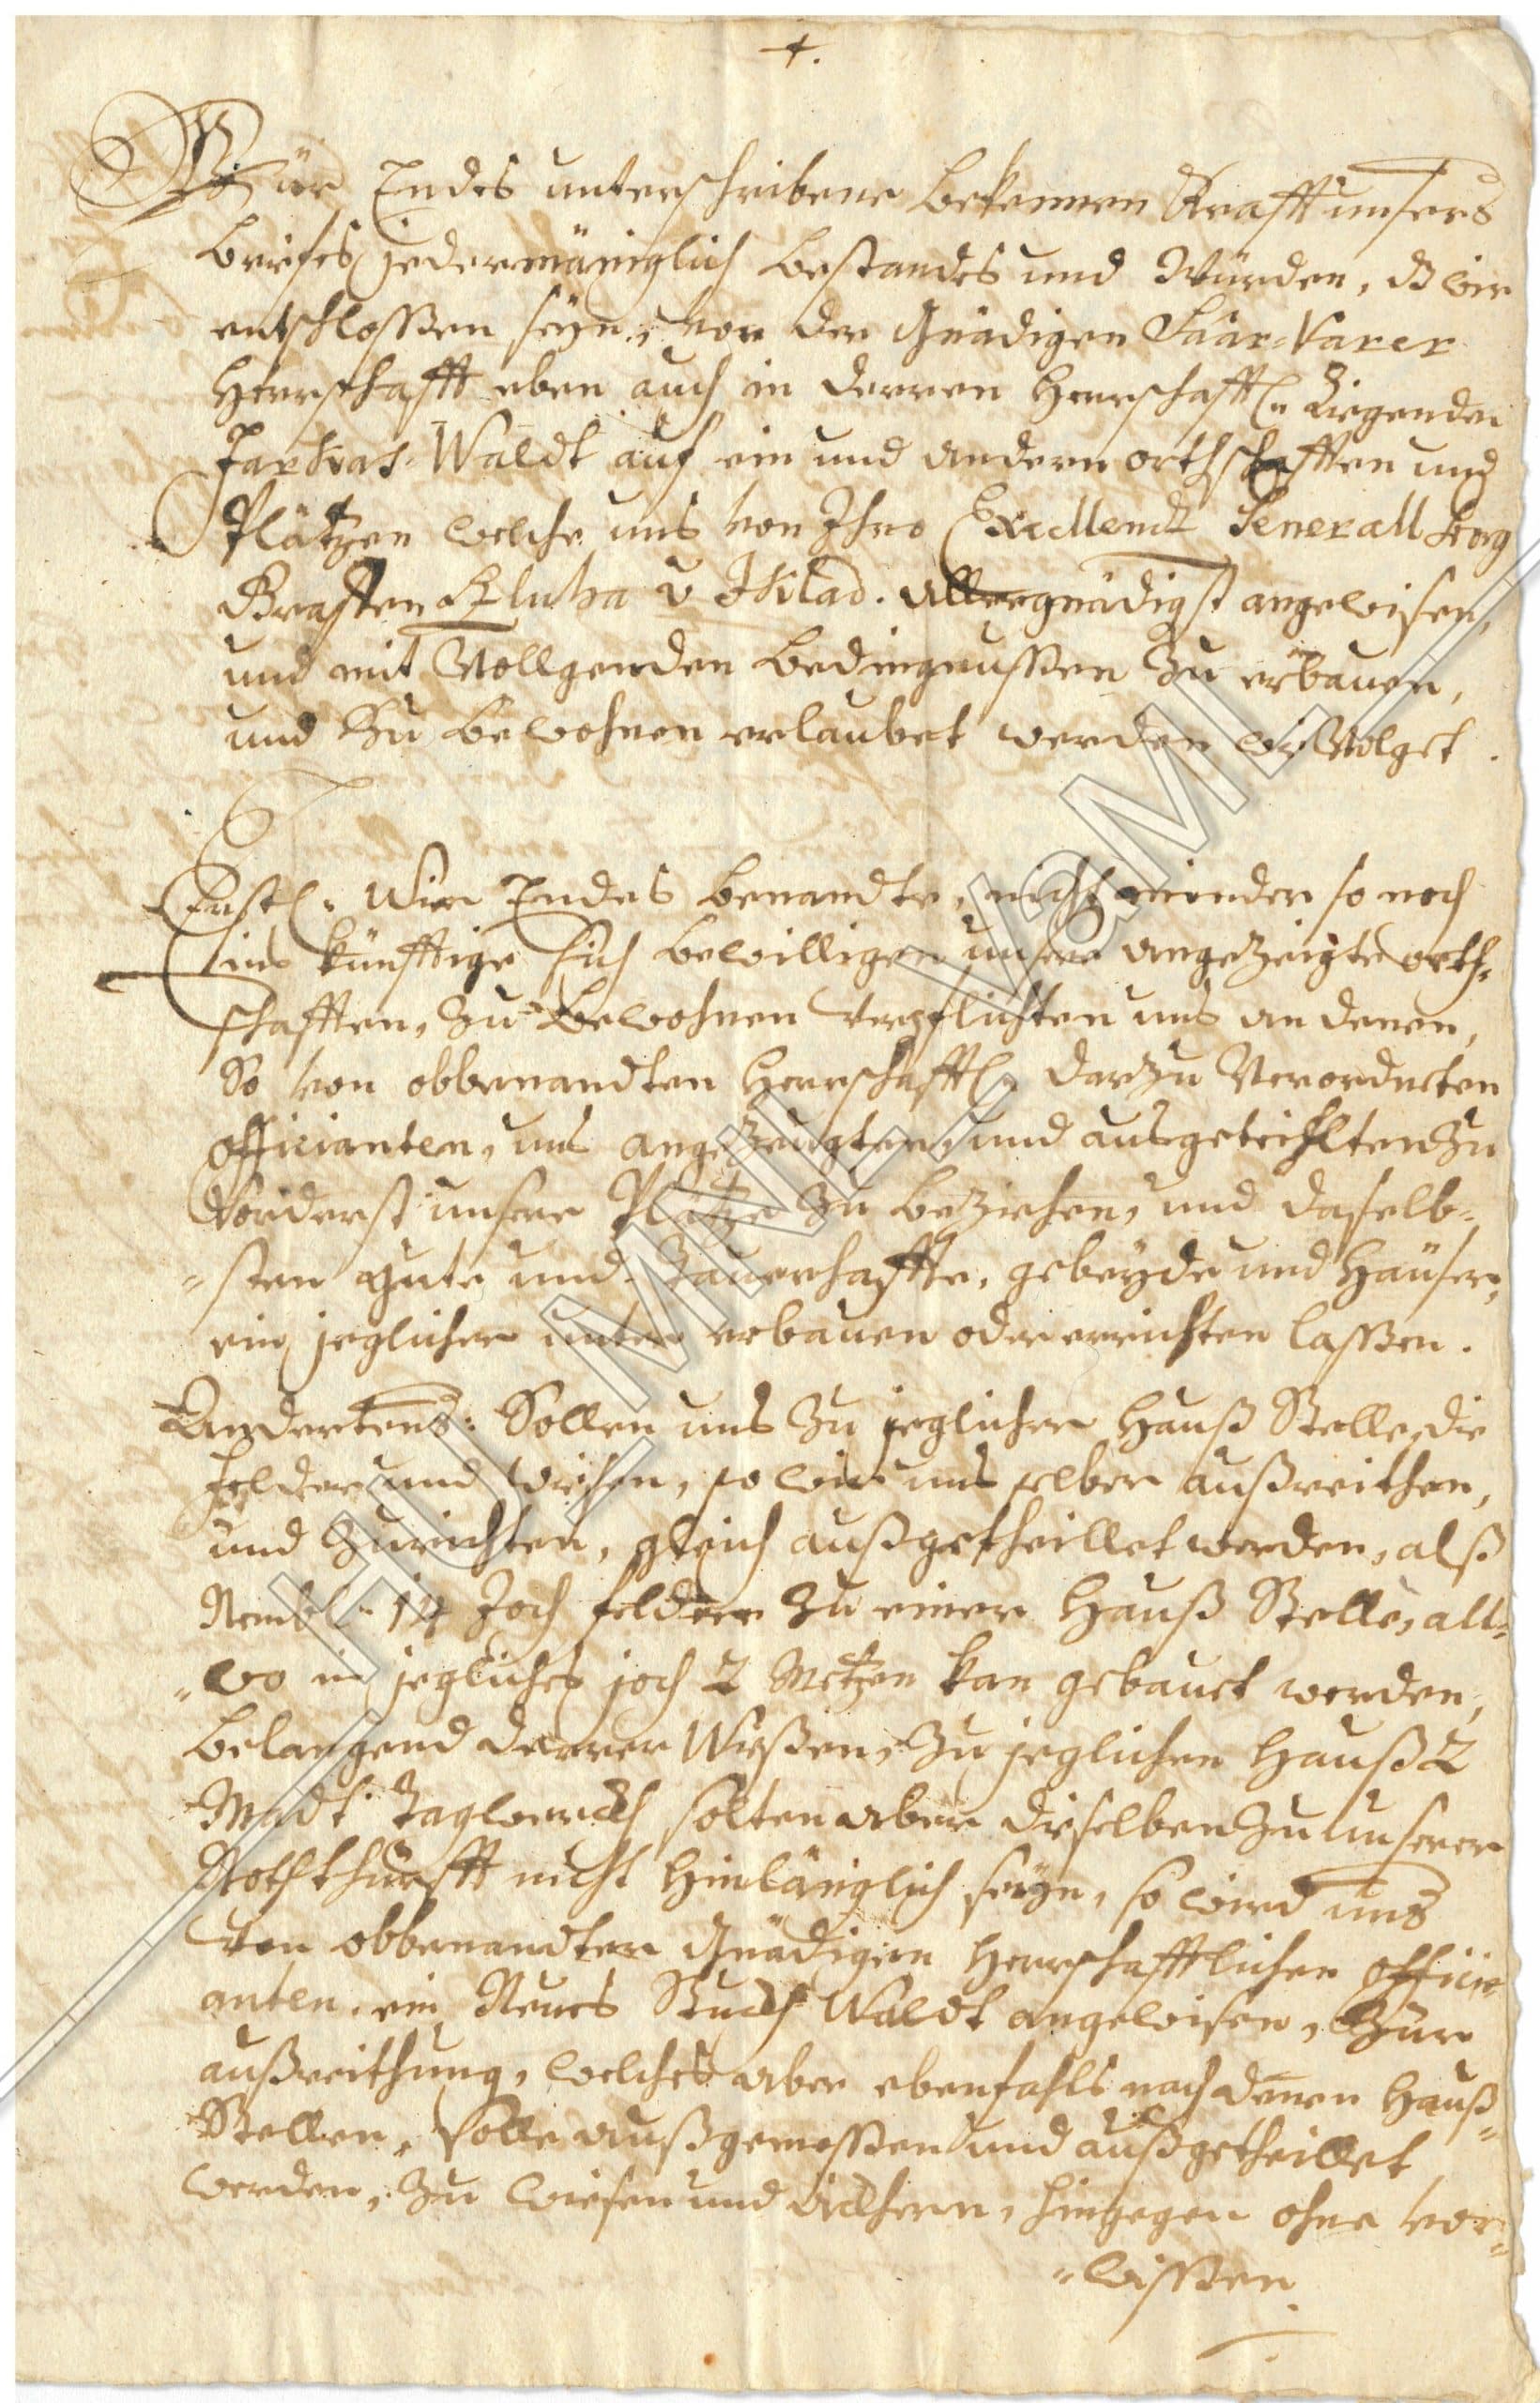 Wür Endes unterschribene bekennen Krafft unsers
briefes jedermäniglich bestandes und Würden, dß wir
entschlossen seyn, von der Gnädigen Saar-Varer
Herrschafft eben auch in derren Herrschafftl: Liegenden
Farkas-Waldt auf ein und andern orthschafften und
Plätzen welche uns von Ihro Excellendt Generall
Graffen Kluba v Gnädigst angewisen,
und mit Vollgenden bedingnussen zu erbauen,
und zu bewohnen erlaubet werden wie Volget.
Erstl: Wir Endes benandte, nicht minder so noch
ins künfftige sich bewilligen unsere angezeigte orth-
schafften, zu bewohnen verpflichten uns an denen,
So von obbenandten Herrschafftl: darzu Verordneten
officianten, uns angezeugten und ausgeteihlten zu
Vorderst unsere Plätze zu beziehen, und daselb-
sten gute und Dauerhaffte, gebeyde und Häuser,
ein jeglicher unter erbauen oder errichten lassen.
Andertens: Sollen uns zu jeglicher Hauß Stelle, die
felder und wiesen, so wir uns selber außreithen,
und zurichten, gleich außgetheillet werden, alß
Nembl: 14 Joch felder zu einer Hauß Stelle, all-
wo in jegliches joch 2 Metzen kan gebauet werden,
belangend derrer Wießen, zu jeglichen Hauß 2
Madt Taglwerckh solten aber dieselben zu unserer
Nothturfft nicht hinlänglich seyn, so wird uns
von obbenandter Gnädigen Herrschafftlichen offici-
anten, ein Neues Stuckh Waldt angewisen, zur
außreithung, welches aber ebenfahls nach denen Hauß-
Stellen, solle außgemessen und außgetheillet
werden, zu wiesen und äckhern, hingegen ohne vor-
wissen
HU MNL VaML